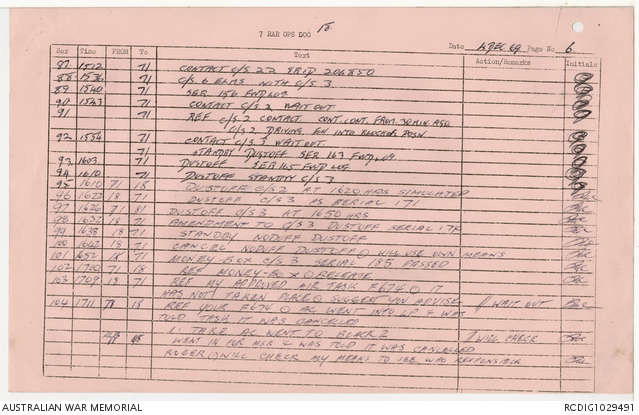 7 RAR OPS LOG 18
Date 4 DEC 69 Page No 6
Ser Time FROM To Text Action/Remarks Initials
87 1512 71 CONTACT C/S 22 GRID 206850
88 1536 71 C/S 6 ELMS WITH C/S 3
89 1540 71 SER 156 FWD LOG
90 1543 71 CONTACT C/S 2 WAIT OUT
91 71 REF C/S 2 CONTACT CONT. CONT. FROM 30 MIN AGO
C/S 2 DRIVING EN INTO BLOCKER POSN
92 1554 71 CONTACT C/S 3 WAIT OUT
STANDBY DUSTOFF SER 163 FWD LOG
93 1603 71 DUSTOFF SER 165 FWD LOG
94 1610 71 DUSTOFF STANDBY C/S 3
95 1610 71 18 DUSTOFF C/S 2 AT 1620 HRS SIMULATED
96 1622 18 71 DUSTOFF C/S 3 AS SERIAL 171
97 1626 71 81 DUSTOFF C/S 3 AT 1650 HRS
98 1632 18 71 AMENDMENT TO C/S 3 DUSTOFF SERIAL 178
99 1638 18 71 STANDBY NODUFF DUSTOFF
100 1642 18 71 CANCEL NODUFF DUSTOFF WILL USE OWN MEANS
101 1652 18 71 MONEY BOX C/S 3 SERIAL 185 PASSED
102 1700 71 18 REF MONEY-BOX RELEASE
103 1709 18 71 REF MY APPROVED AIR TASK F674 IT
HAS NOT TAKEN PLACE SUGGEST YOU ADVISE // WAIT OUT
104 1711 71 18 REF YOUR F674 AC WENT INTO LP & WAS
TOLD TASK IT WAS CANCELED
TASK AC WENT TO BLACK 2 // WILL CHECK
WENT IN FOR HER & WAS TOLD IT WAS CANCELLED
ROGER WILL CHECK MY MEANS TO SEE WHO RESPONSIBLE
AUSTRALIAN WAR MEMORIAL
RCDIG1029491